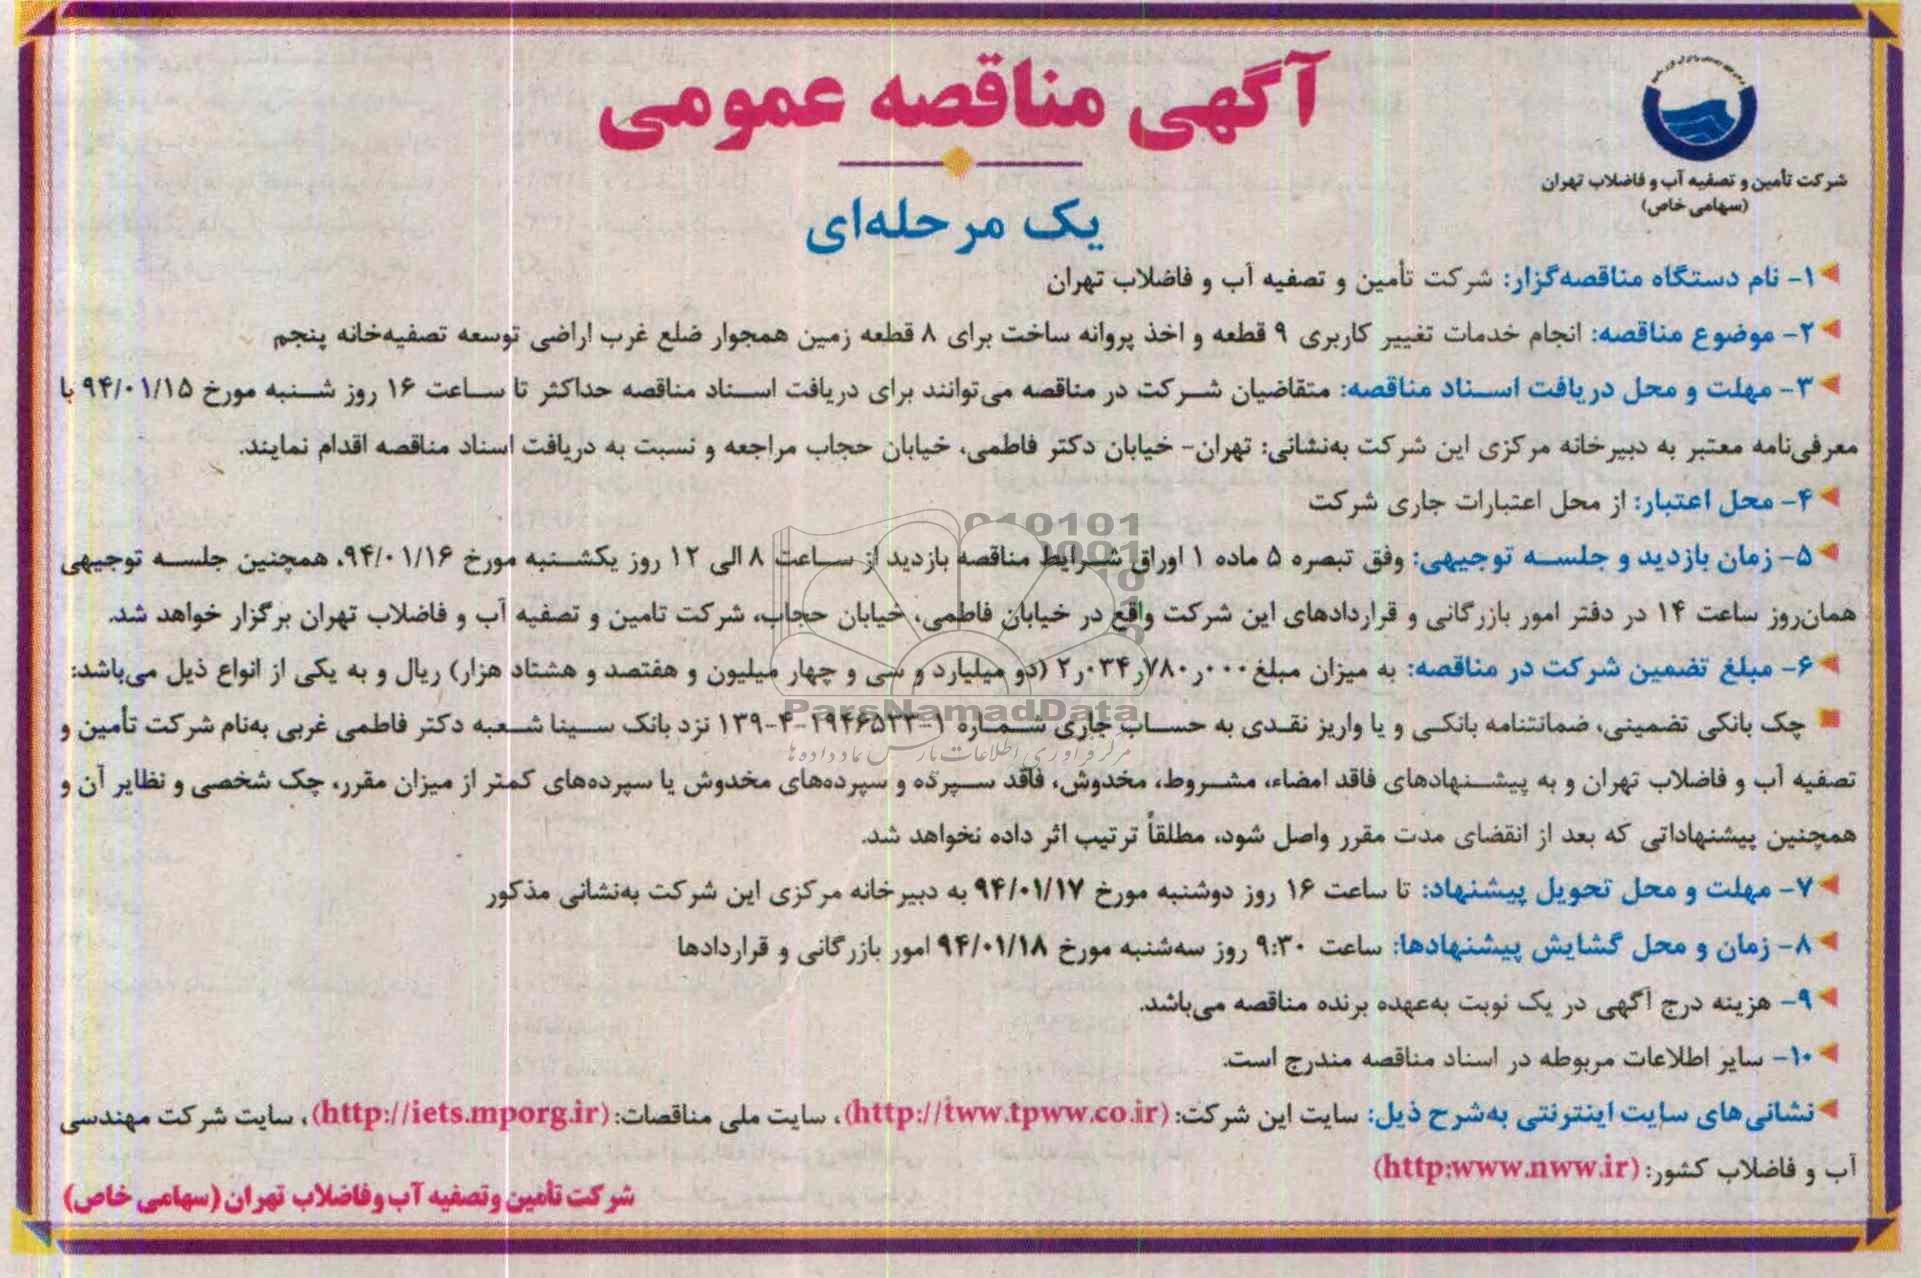 آگهی مناقصه عمومی
یک مرحله‌ای
شرکت تأمین و تصفیه آب و فاضلاب تهران
(سهامی خاص)
۱- نام دستگاه مناقصه‌گزار: شرکت تأمین و تصفیه آب و فاضلاب تهران
۲- موضوع مناقصه: انجام خدمات تغییر کاربری ۹ قطعه و اخذ پروانه ساخت برای ۸ قطعه زمین همجوار ضلع غرب اراضی توسعه تصفیه‌خانه پنجم
۳- مهلت و محل دریافت اسناد مناقصه: متقاضیان شرکت در مناقصه می‌توانند برای دریافت اسناد مناقصه حداکثر تا ساعت ۱۶ روز شنبه مورخ ۹۴/۰۱/۱۵ با
معرفی‌نامه معتبر به دبیرخانه مرکزی این شرکت به‌نشانی: تهران- خیابان دکتر فاطمی، خیابان حجاب مراجعه و نسبت به دریافت اسناد مناقصه اقدام نمایند.
۴- محل اعتبار: از محل اعتبارات جاری شرکت
۵- زمان بازدید و جلسه توجیهی: وفق تبصره ۵ ماده ۱ اوراق شرایط مناقصه بازدید از ساعت ۸ الی ۱۲ روز یکشنبه مورخ ۹۴/۰۱/۱۶، همچنین جلسه توجیهی
همان‌روز ساعت ۱۴ در دفتر امور بازرگانی و قراردادهای این شرکت واقع در خیابان فاطمی، خیابان حجاب، شرکت تامین و تصفیه آب و فاضلاب تهران برگزار خواهد شد.
۶- مبلغ تضمین شرکت در مناقصه: به میزان مبلغ ۲٫۰۳۴٫۷۸۰٫۰۰۰ (دو میلیارد و سی و چهار میلیون و هفتصد و هشتاد هزار) ریال و به یکی از انواع ذیل می‌باشد:
چک بانکی تضمینی، ضمانتنامه بانکی و یا واریز نقدی به حساب جاری شماره ۱-۱۹۴۶۵۳۳-۴-۱۳۹ نزد بانک سینا شعبه دکتر فاطمی غربی به‌نام شرکت تأمین و
تصفیه آب و فاضلاب تهران و به پیشنهادهای فاقد امضاء، مشروط، مخدوش، فاقد سپرده و سپرده‌های مخدوش یا سپرده‌های کمتر از میزان مقرر، چک شخصی و نظایر آن و
همچنین پیشنهاداتی که بعد از انقضای مدت مقرر واصل شود، مطلقاً ترتیب اثر داده نخواهد شد.
۷- مهلت و محل تحویل پیشنهاد: تا ساعت ۱۶ روز دوشنبه مورخ ۹۴/۰۱/۱۷ به دبیرخانه مرکزی این شرکت به‌نشانی مذکور
۸- زمان و محل گشایش پیشنهادها: ساعت ۹:۳۰ روز سه‌شنبه مورخ ۹۴/۰۱/۱۸ امور بازرگانی و قراردادها
۹- هزینه درج آگهی در یک نوبت به‌عهده برنده مناقصه می‌باشد.
۱۰- سایر اطلاعات مربوطه در اسناد مناقصه مندرج است.
نشانی‌های سایت اینترنتی به‌شرح ذیل: سایت این شرکت: (http://tww.tpww.co.ir)، سایت ملی مناقصات: (http://iets.mporg.ir)، سایت شرکت مهندسی
آب و فاضلاب کشور: (http:www.nww.ir)
شرکت تأمین وتصفیه آب وفاضلاب تهران (سهامی خاص)
ParsNamadData